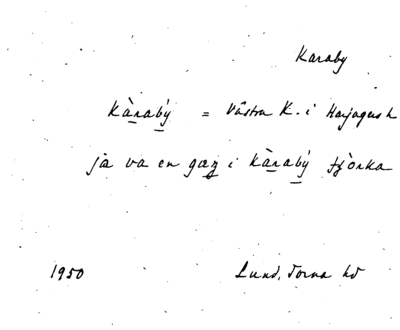 Karaby
kàrabý = Västra K. i Harjagers h
ja va en gæz i kàrabý tjòrka
1950 Lund, Torna hd